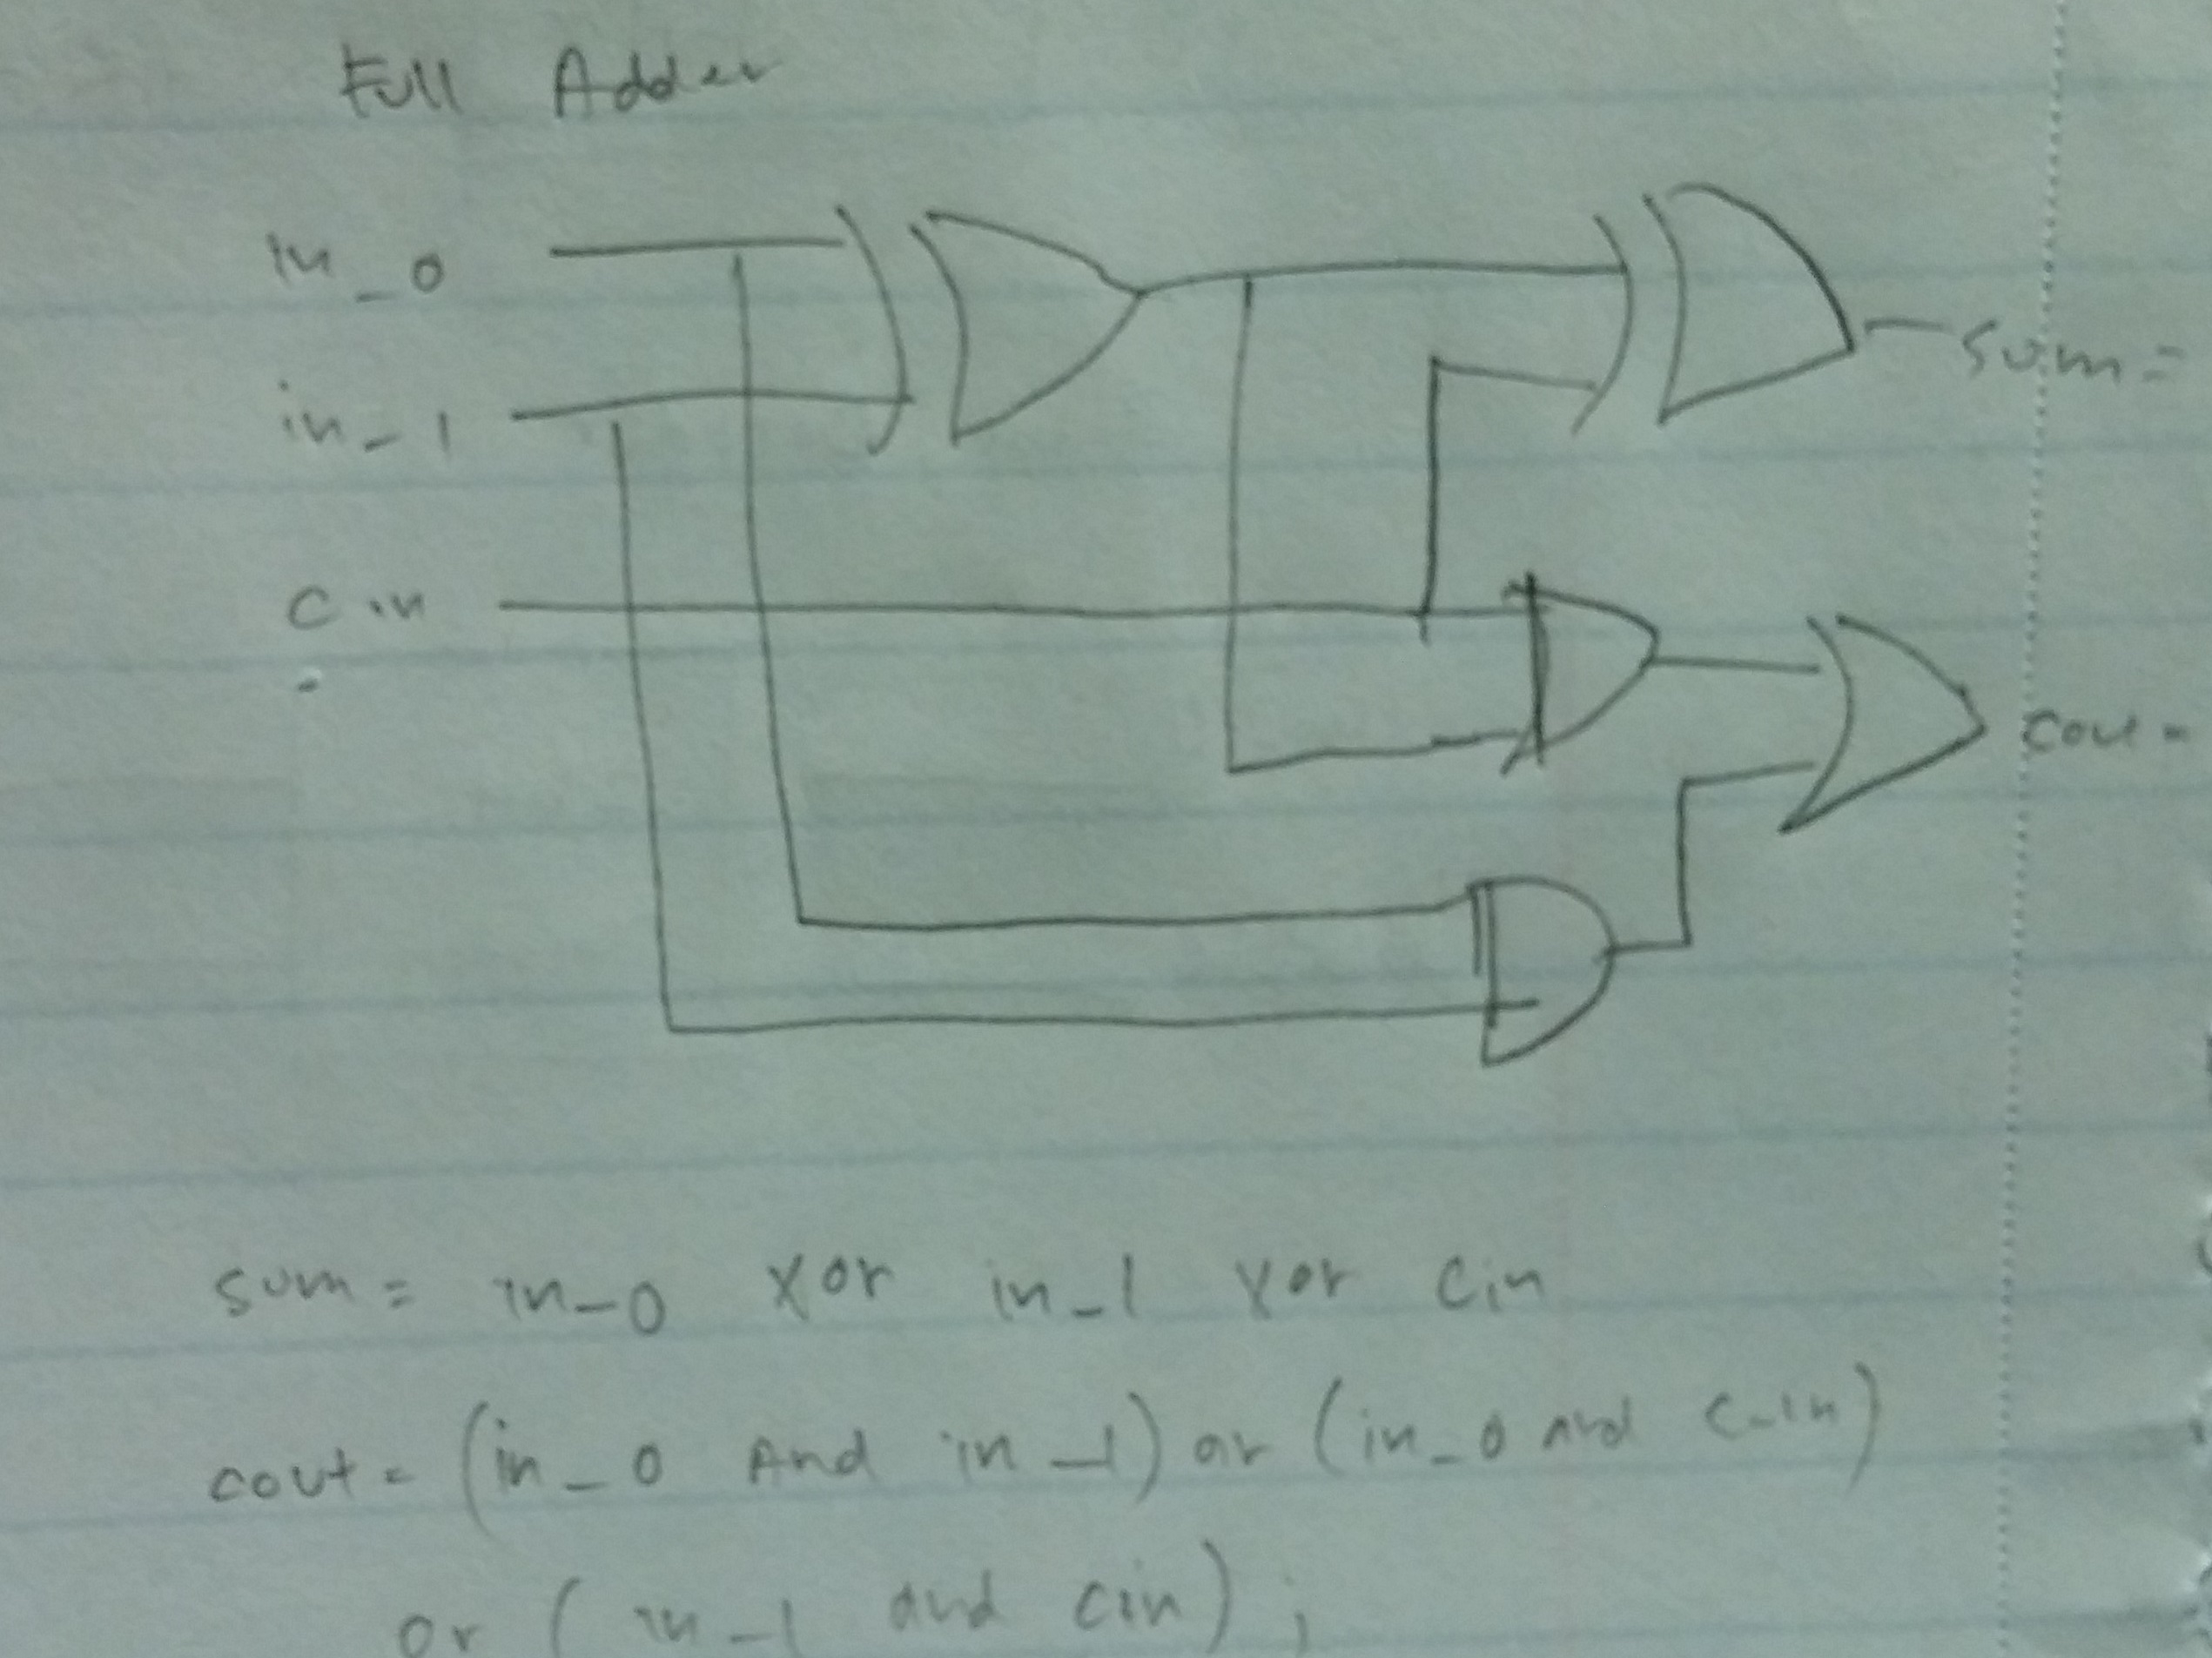 Full Adder
in_0
in_1
sum=
cin
cou=
sum= in_0 xor in_1 xor Cin
cout= (in_0 And in_1) or (in_0 and c_in)
or (in_1 and cin);